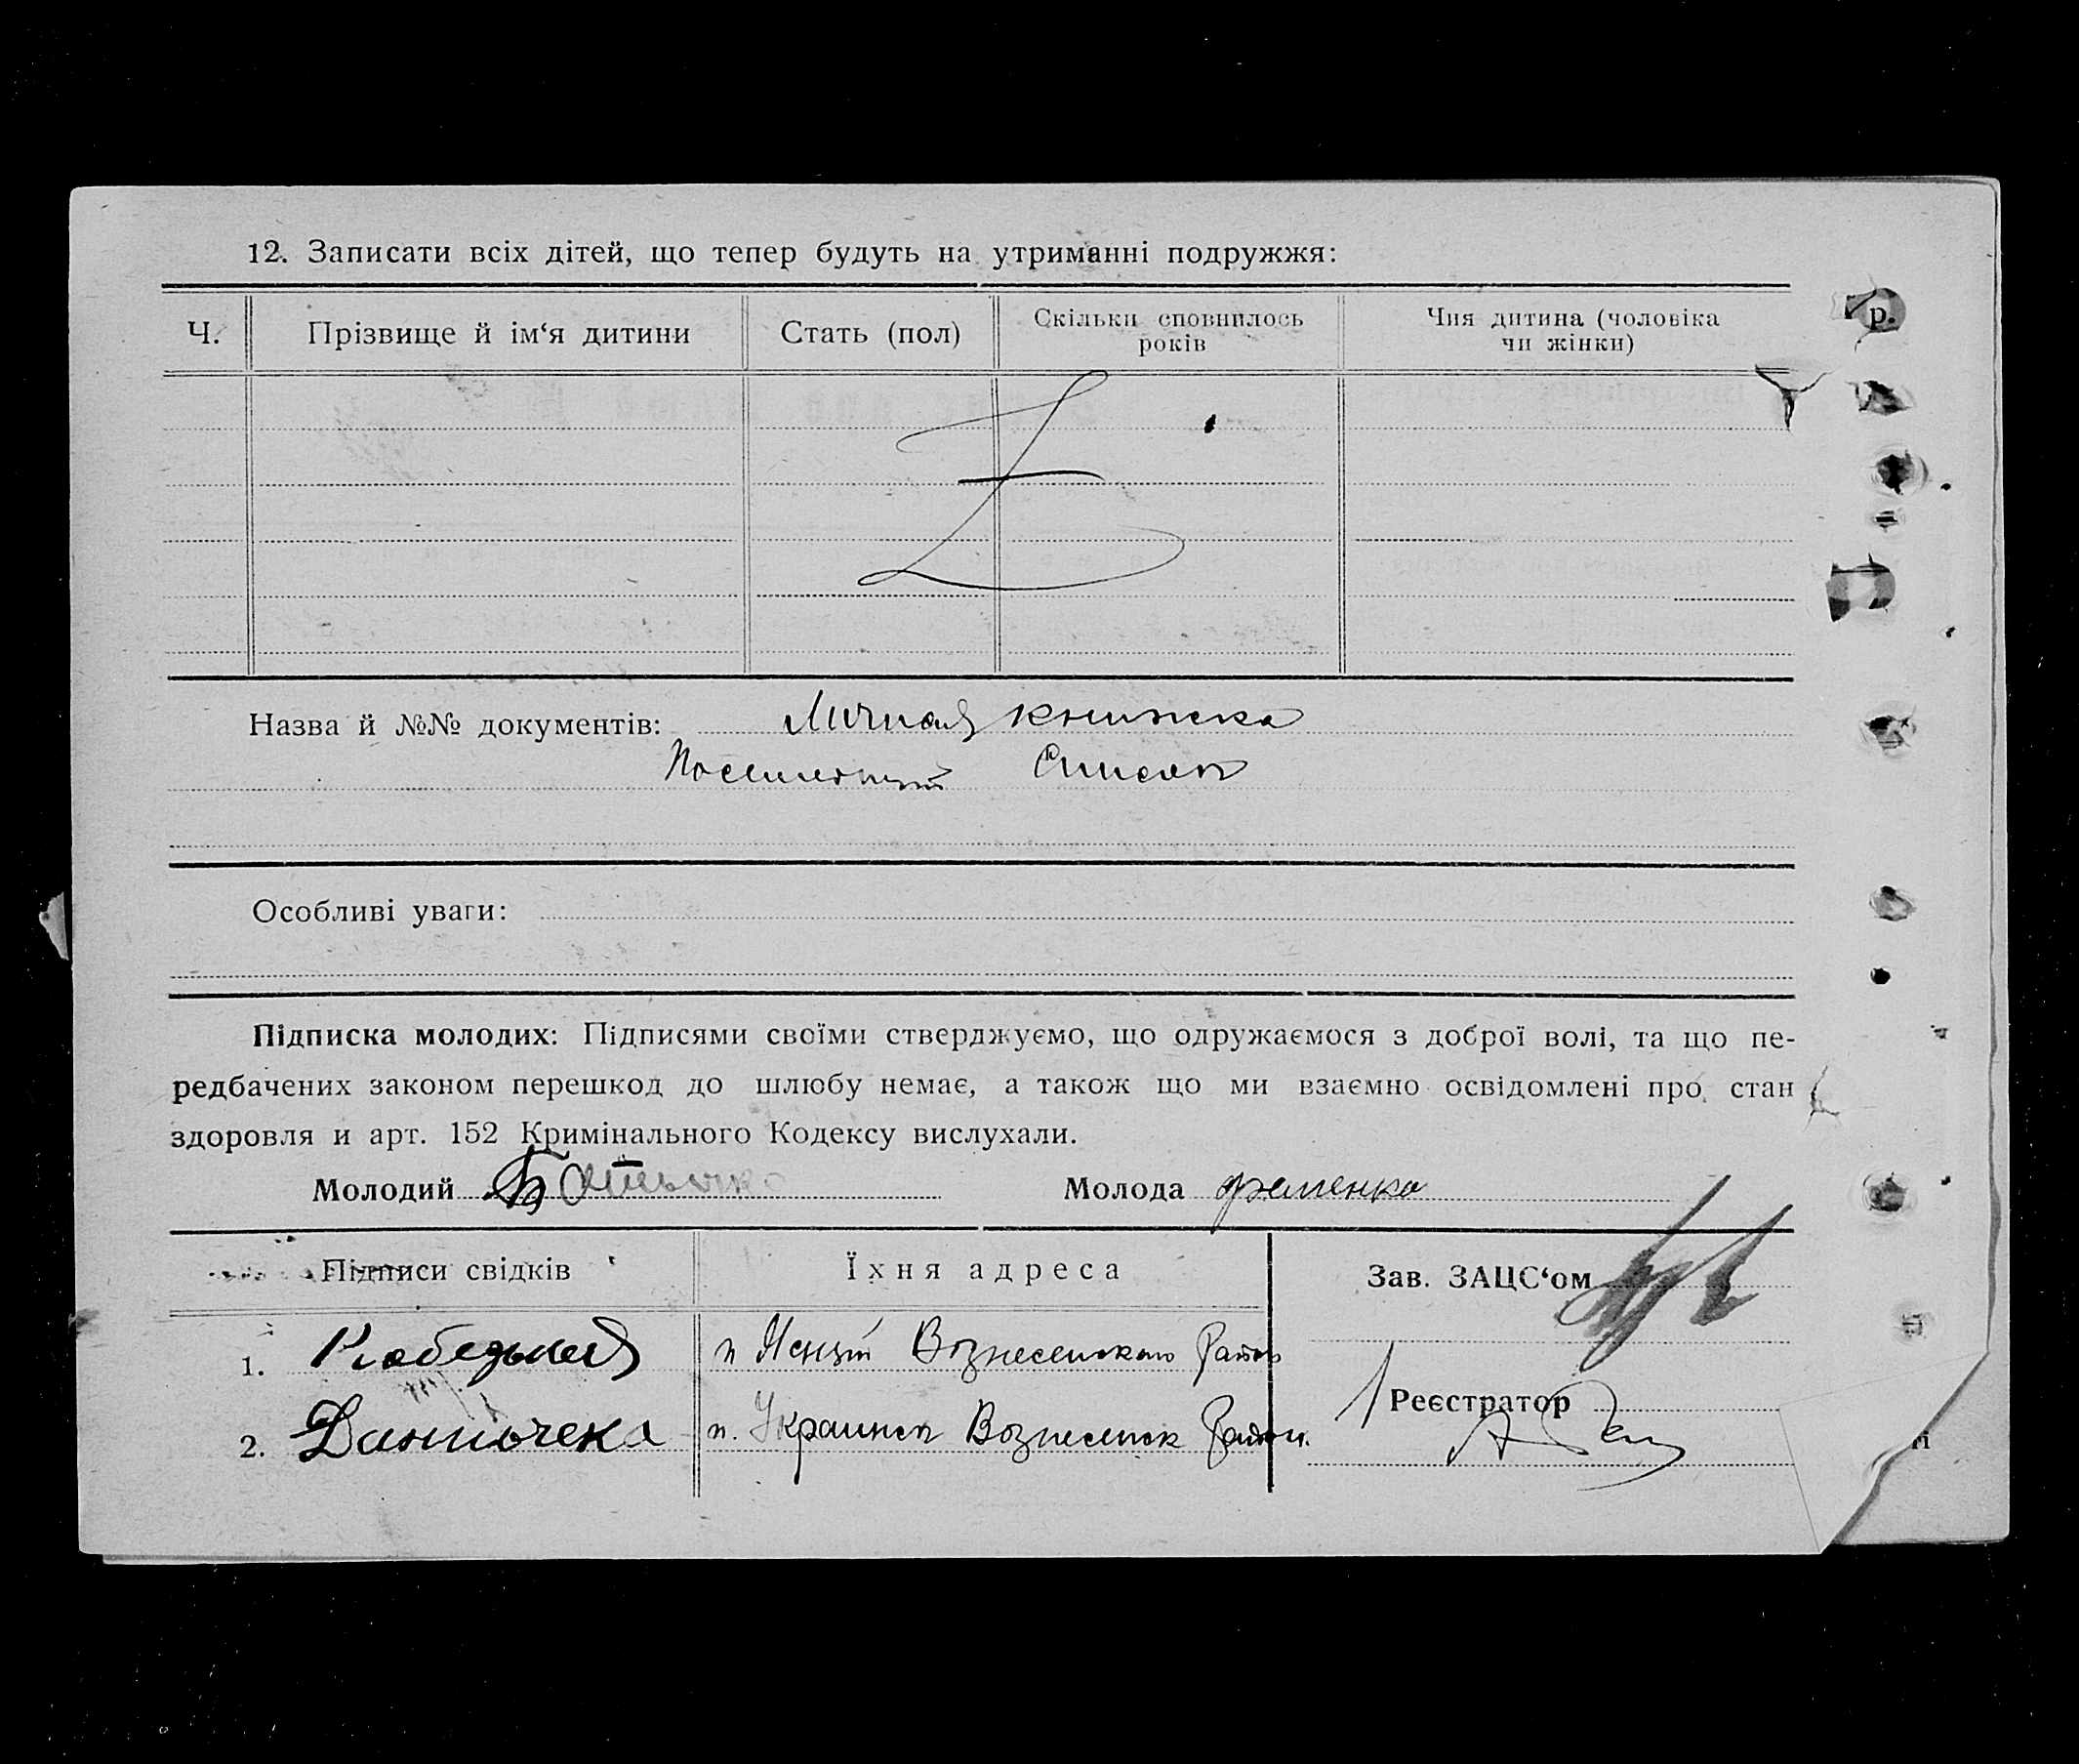 12. Записати всіх дітей, що тепер будуть на утриманні подружжя:
Ч. Прізвище й ім‘я дитини Стать (пол) Скільки сповнилось років Чия дитина (чоловіка чи жінки)
р.
Назва й №№ документів: Личная книжка
Список
Особливі уваги:
Підписка молодих: Підписями своїми стверджуємо, що одружаємося з доброї волі, та що пе-
редбачених законом перешкод до шлюбу немає, а також що ми взаємно освідомлені про стан
здоровля и арт. 152 Кримінального Кодексу вислухали.
Молодий Молода
Підписи свідків Їхня адреса Зав. ЗАЦС‘ом
1. Вознесенского Район
Реєстратор
2. п. Украинск Вознесенск Район.